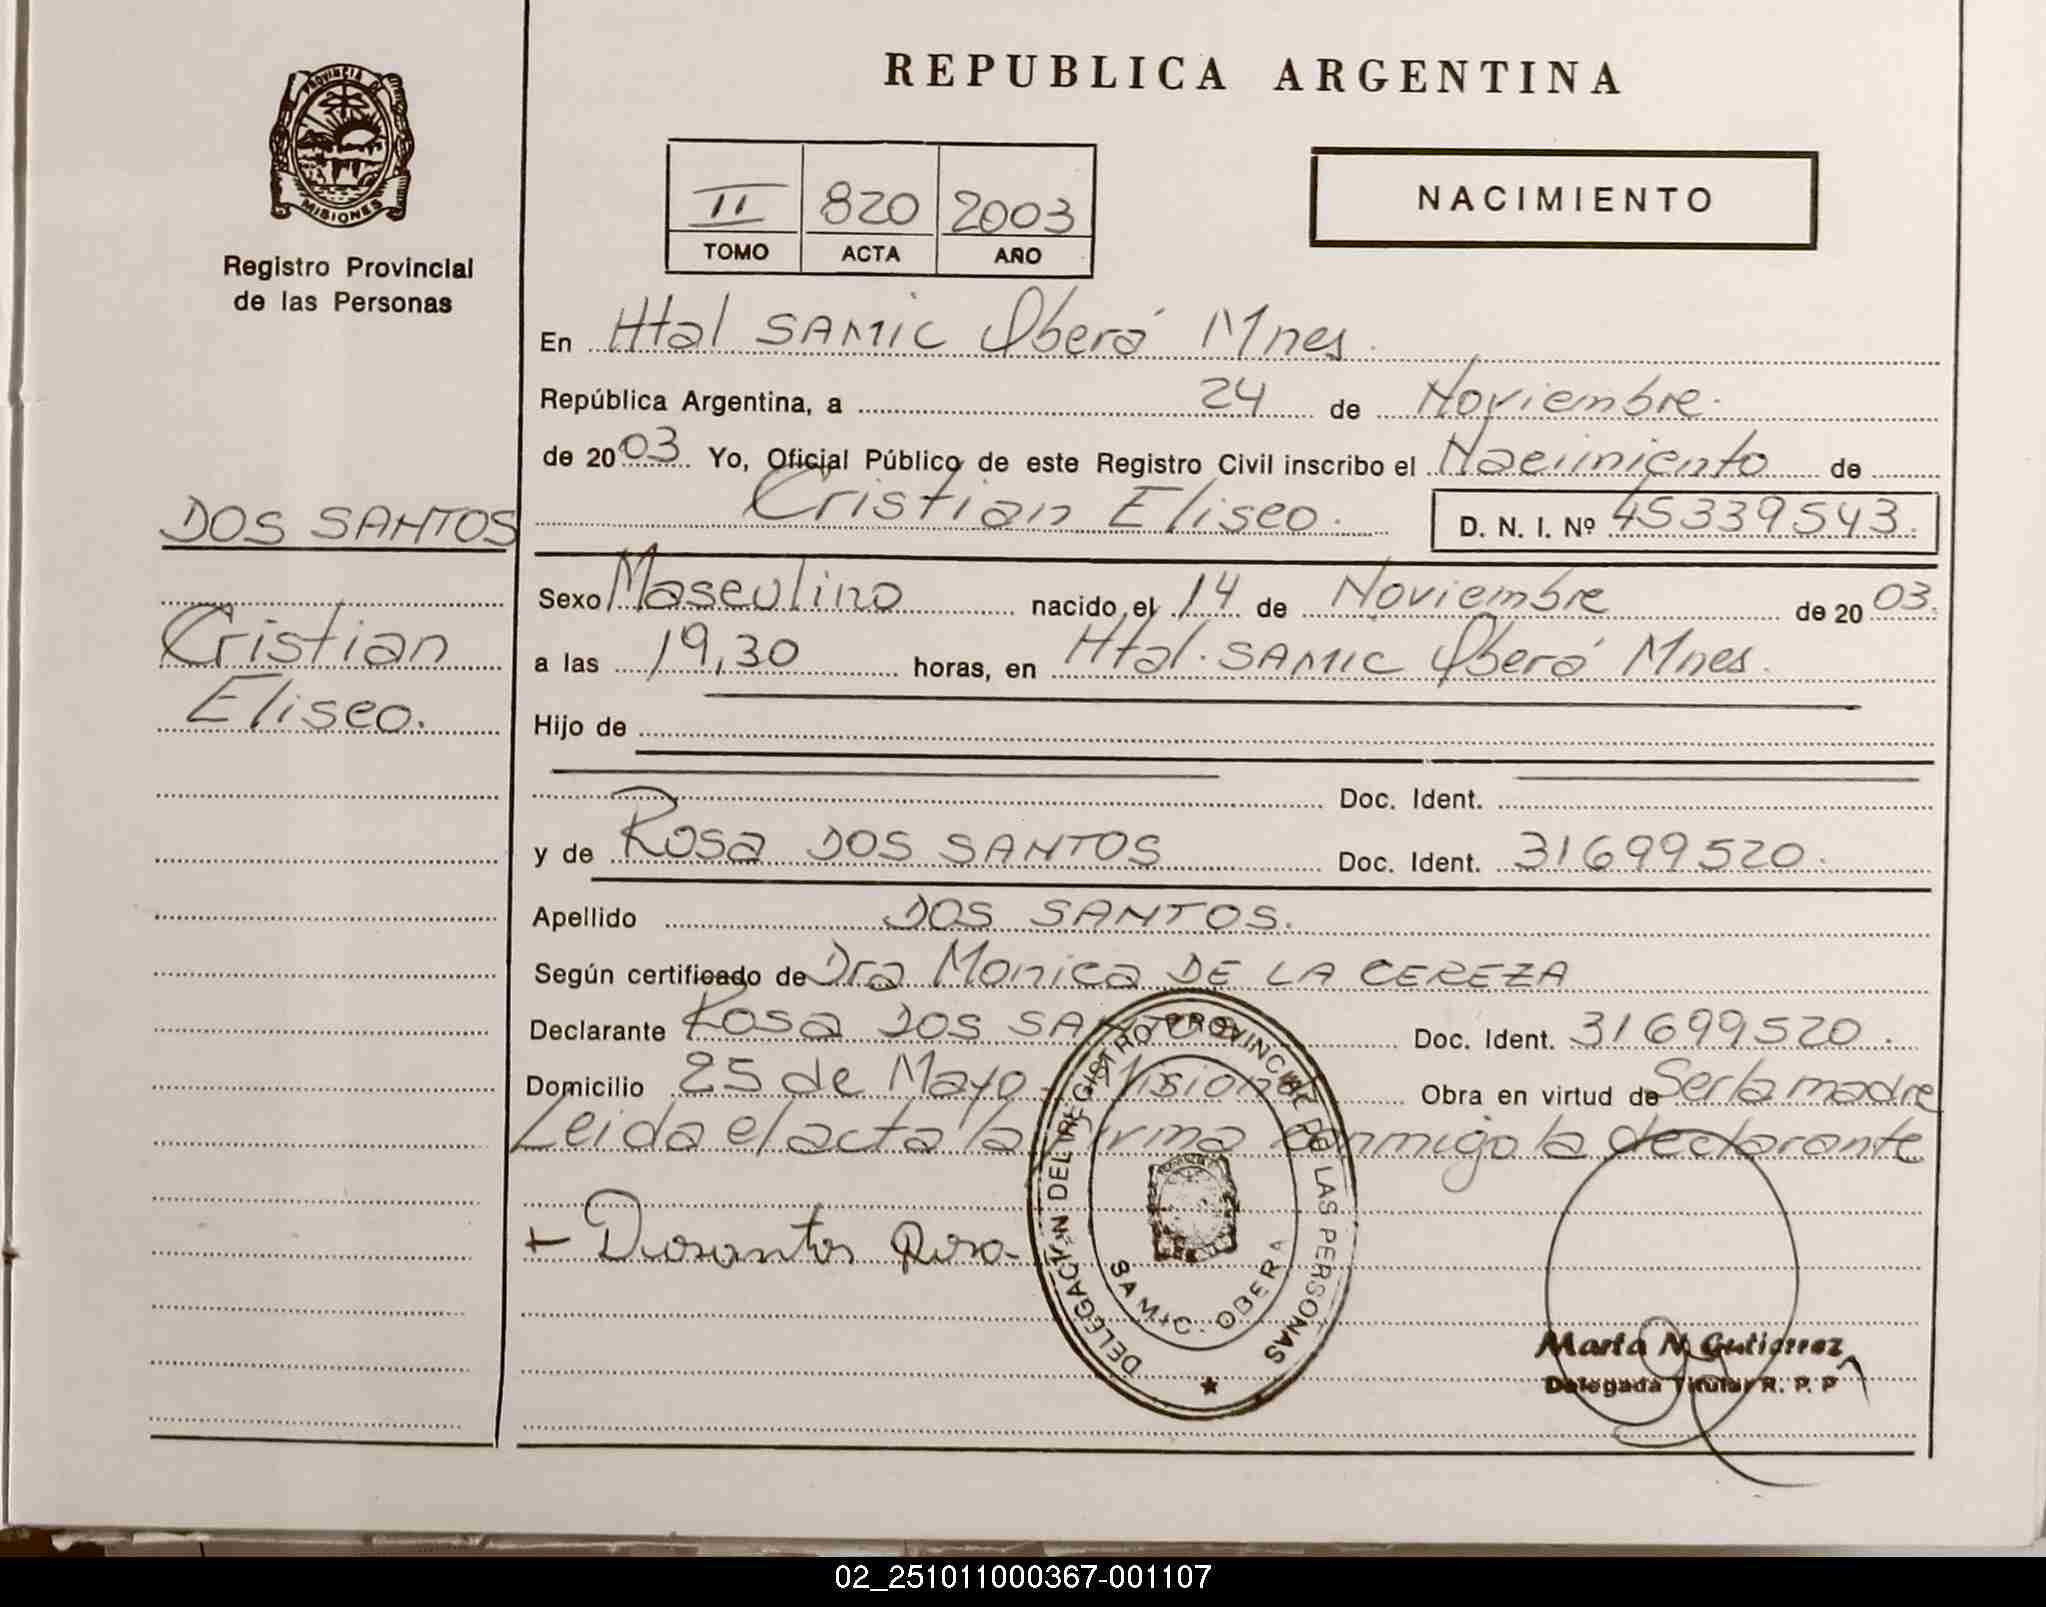 REPUBLICA ARGENTINA
PROVINCIA DE
MISIONES
Registro Provincial
de las Personas
II 820 2003
TOMO ACTA AÑO
NACIMIENTO
En Htal SAMIC Oberá Mnes.
República Argentina, a 24 de Noviembre.
de 2003. Yo, Oficial Público de este Registro Civil inscribo el Nacimiento de
DOS SANTOS
Cristian Eliseo. D. N. I. Nº 45339543.
Sexo Masculino nacido el 14 de Noviembre de 2003.
Cristian
a las 19,30 horas, en Htal. SAMIC Oberá Mnes.
Eliseo.
Hijo de
Doc. Ident.
y de Rosa DOS SANTOS Doc. Ident. 31699520.
Apellido DOS SANTOS.
Según certificado de Dra Monica DE LA CEREZA
Declarante Rosa DOS SANTOS Doc. Ident. 31699520.
Domicilio 25 de Mayo - Misiones Obra en virtud de Ser la madre
Leida el acta la firma conmigo la declarante
+ Dosantos Rosa
DELEGACION DEL REGISTRO PROVINCIAL DE LAS PERSONAS
SAMIC. OBERA
Marta N. Gutierrez
Delegada Titular R. P. P
02_251011000367-001107